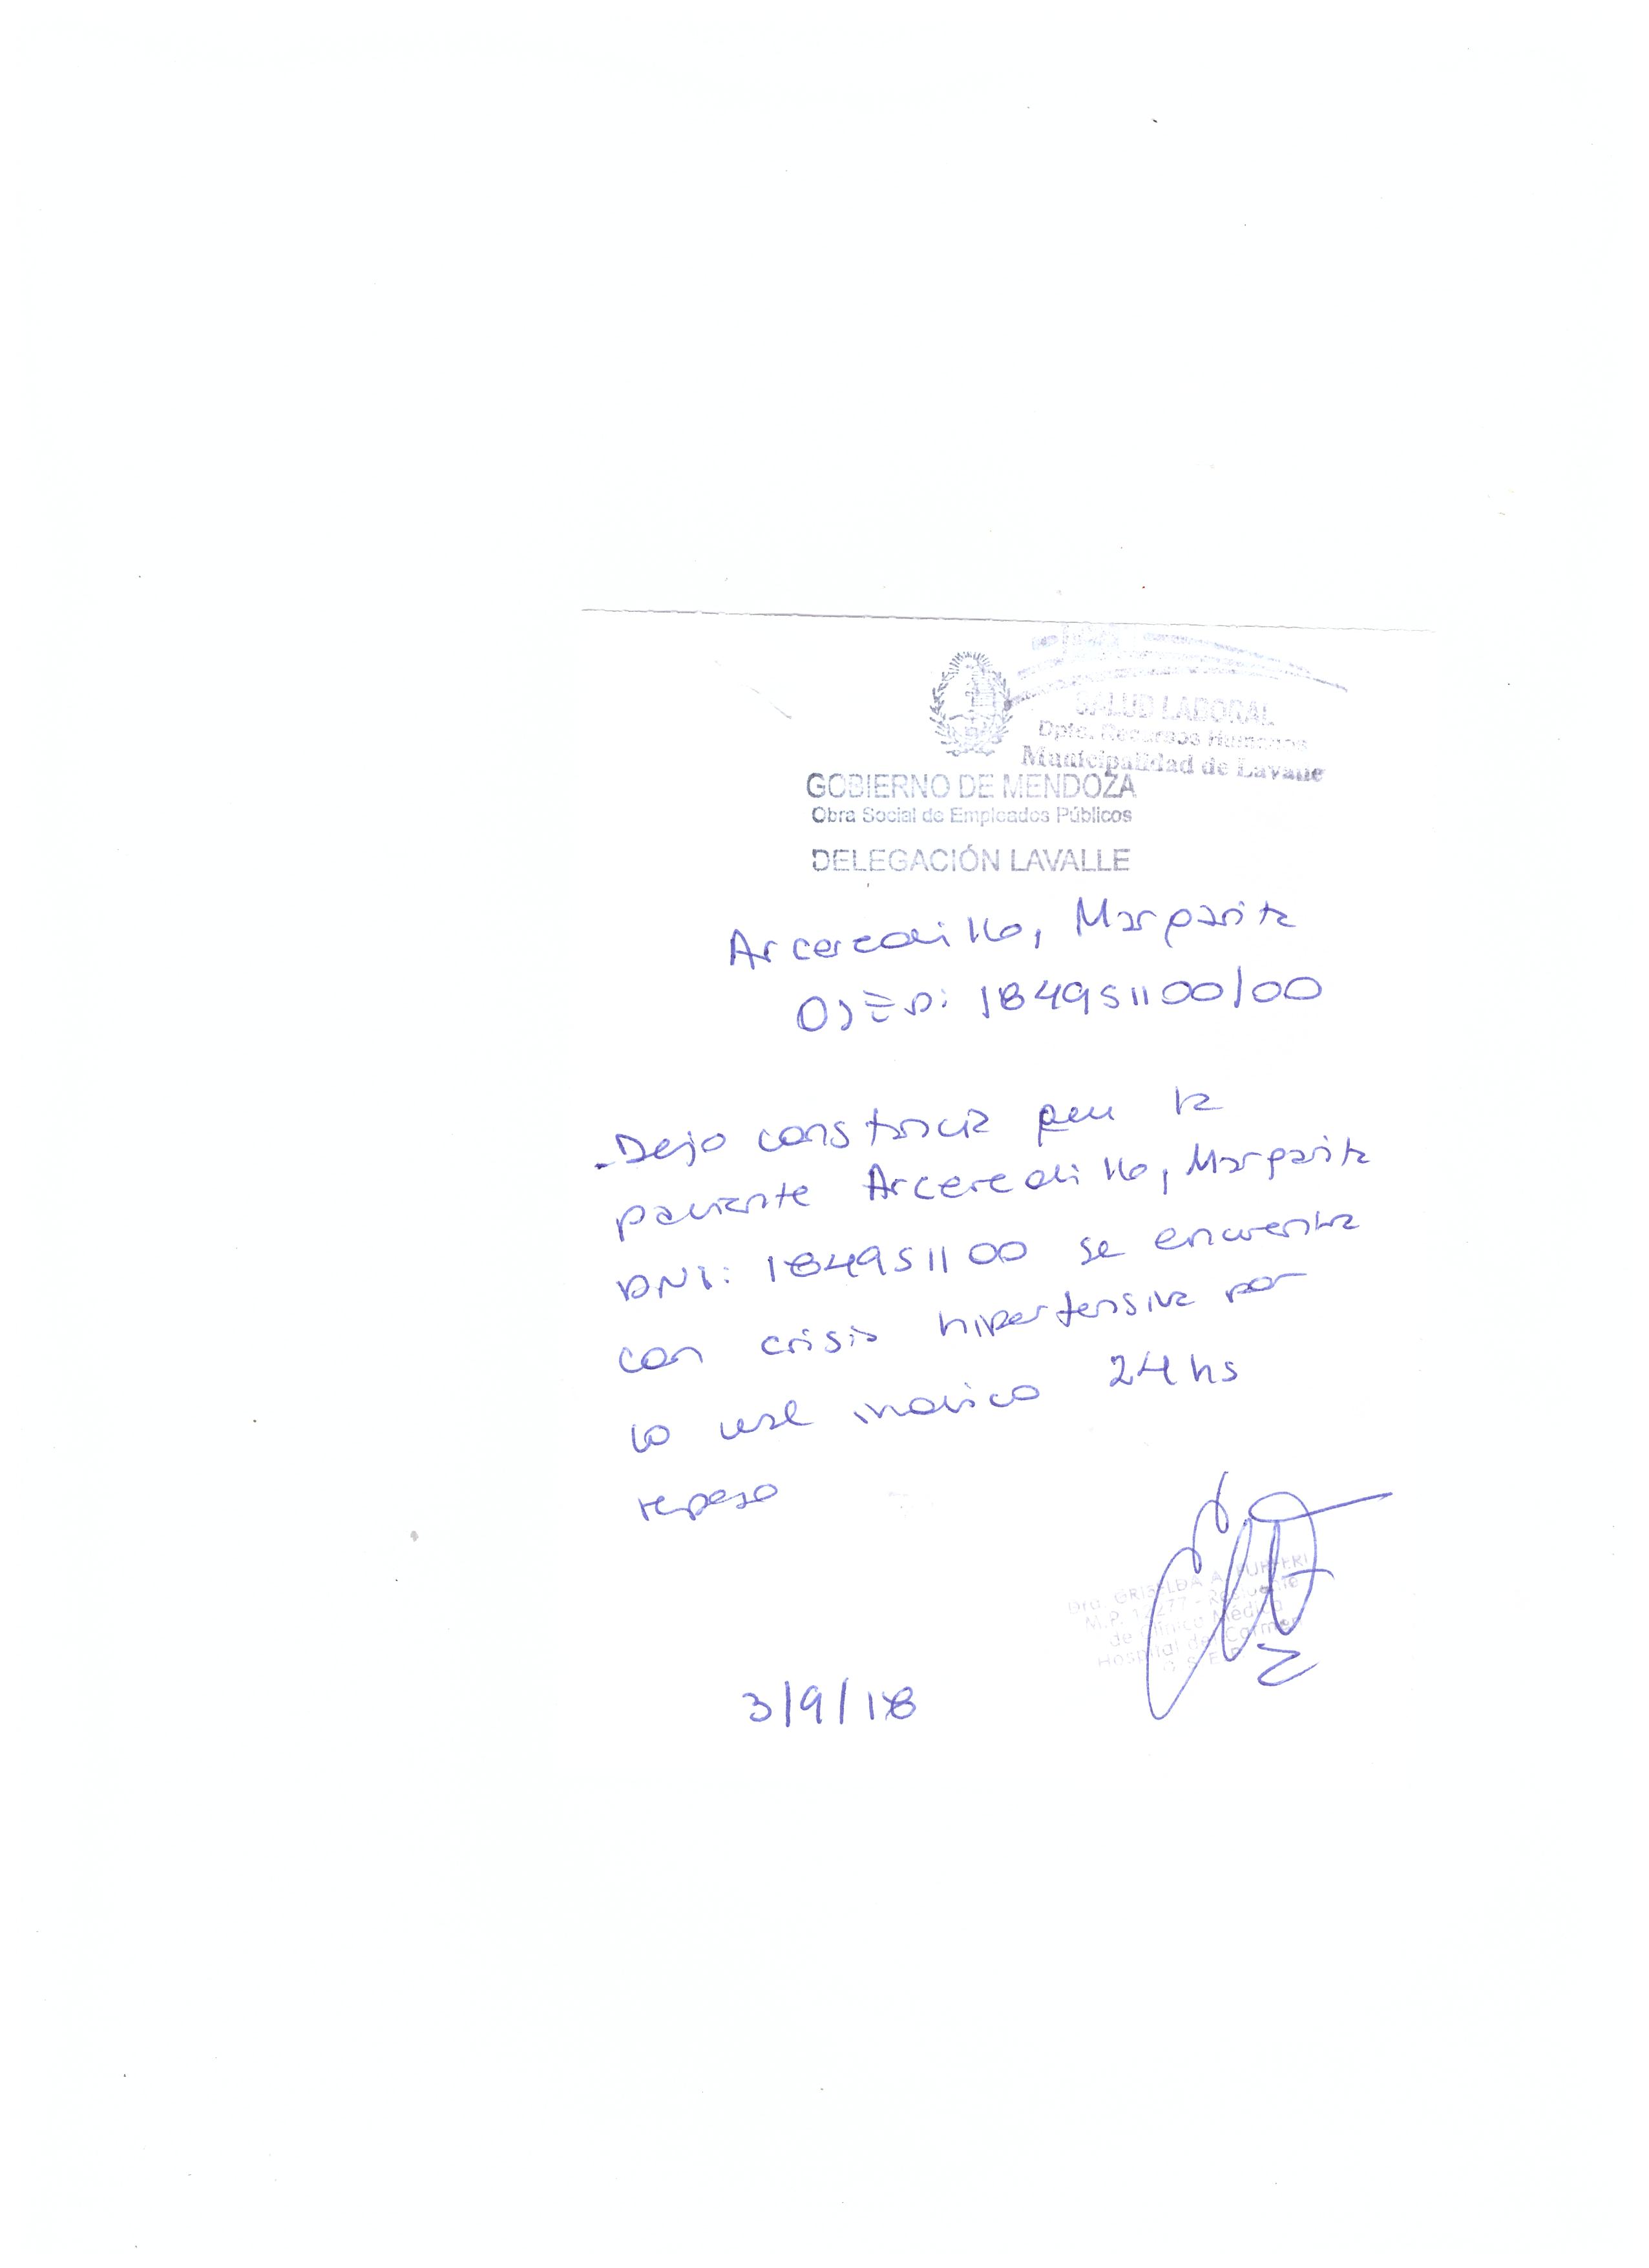 SALUD LABORAL
Dpto. Recursos Humanos
Municipalidad de Lavalle
GOBIERNO DE MENDOZA
Obra Social de Empleados Públicos
DELEGACIÓN LAVALLE
Arceredillo, Margarita
OSEP: 184951100/00
-Dejo constancia que la
paciente Arceredillo, Margarita
DNI: 184951100 se encuentra
con crisis hipertensiva por
lo cual indico 24 hs
reposo
Dra. GRISELDA A.
M.P. - Residente
de Clínica Médica
Hospital del Carmen
O.S.E.P.
3/9/18